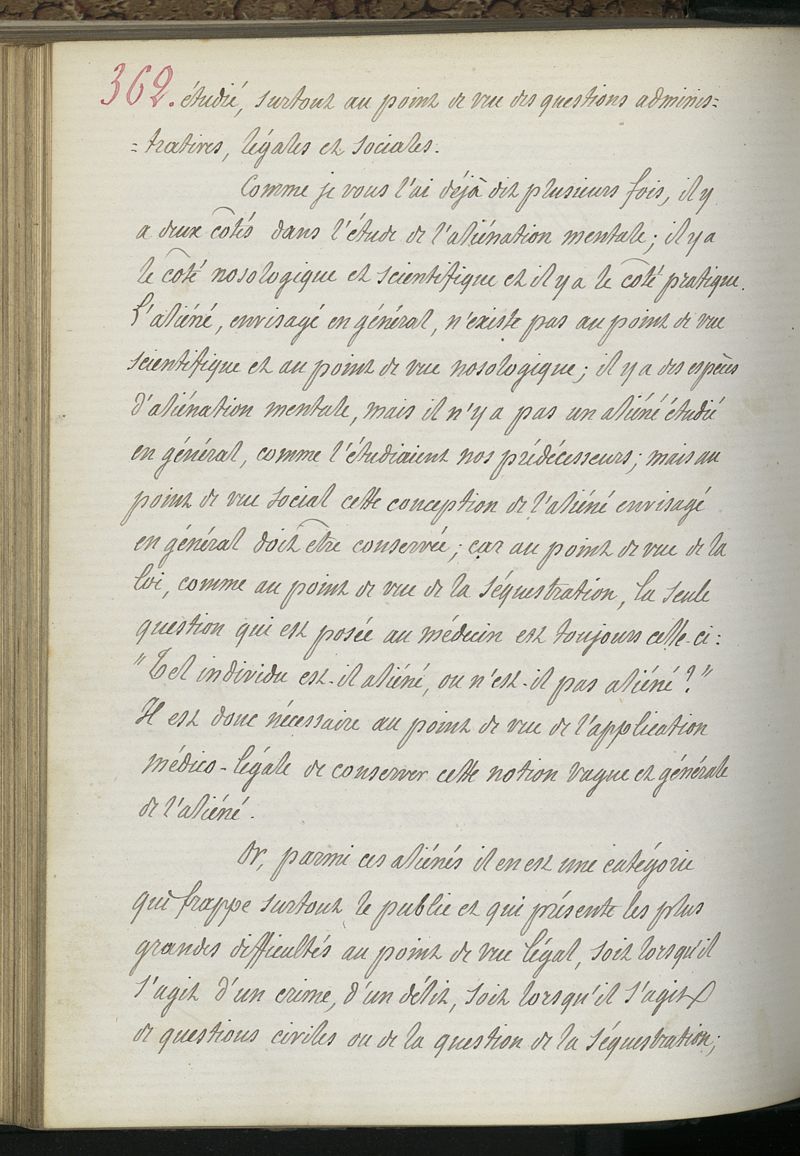 362. étudié, surtout au point de vue des questions adminis=
=tratives, légales et sociales.
Comme je vous l'ai déjà dit plusieurs fois, il y
a deux côtés dans l'étude de l'aliénation mentale; il y a
le côté nosologique et scientifique et il y a le côté pratique.
L'aliéné, envisagé en général, n'existe pas au point de vue
scientifique et au point de vue nosologique; il y a des espèces
d'aliénation mentale, mais il n'y a pas un aliéné étudié
en général, comme l'étudiaient nos prédécesseurs; mais au
point de vue social cette conception de l'aliéné envisagé
en général doit être conservée; car au point de vue de la
loi, comme au point de vue de la séquestration, la seule
question qui est posée au médecin est toujours celle-ci:
"Tel individu est-il aliéné, ou n'est-il pas aliéné?"
Il est donc nécessaire au point de vue de l'application
médico-légale de conserver cette notion vague et générale
de l'aliéné.
Or, parmi ces aliénés il en est une catégorie
qui frappe surtout le public et qui présente les plus
grandes difficultés au point de vue légal, soit lorsqu'il
s'agit d'un crime, d'un délit, soit lorsqu'il s'agit
de questions civiles ou de la question de la séquestration;